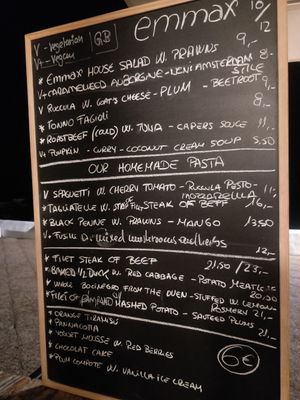 emmax 10/12
V - vegetarian
V+ - vegan
GB
* EMMAX HOUSE SALAD W. PRAWNS 9,-
V+ CARAMELICED AUBERGINE - VENI AMSTERDAM STILE 8-
V RUCCULA W. GOAT'S CHEESE - PLUM - BEETROOT 9,-
* TONNO FAGIOLI 8,-
* ROASTBEEF (COLD) W. TUNA - CAPERS SAUCE 11,-
V+ PUMPKIN - CURRY - COCONUT CREAM SOUP 5.50
OUR HOMEMADE PASTA
V SPAGHETTI W. CHERRY TOMATO - RUCCULA PESTO - MOZZARELLA 11,-
* TAGLIATELLE W. STEAK OF BEEF 16,-
* BLACK PENNE W. PRAWNS - MANGO 13.50
V+ FUSILLI mixed mushrooms and herbs 12,-
* FILET STEAK OF BEEF 21.50 / 23,-
* BAKED 1/2 DUCK W. RED CABBAGE - POTATO 20.50
* WHOLE FROM THE OVEN - STUFFED W. LEMON - ROSMERY 21,-
* FILET OF MASHED POTATO - SAUTEED PLUMS 21,-
* ORANGE TIRAMISU
* PANNACOTTA
* YOGURT MOUSSE W. RED BERRIES
* CHOCOLAT CAKE
* PLUM COMPOTE W. VANILLA ICE CREAM
6€